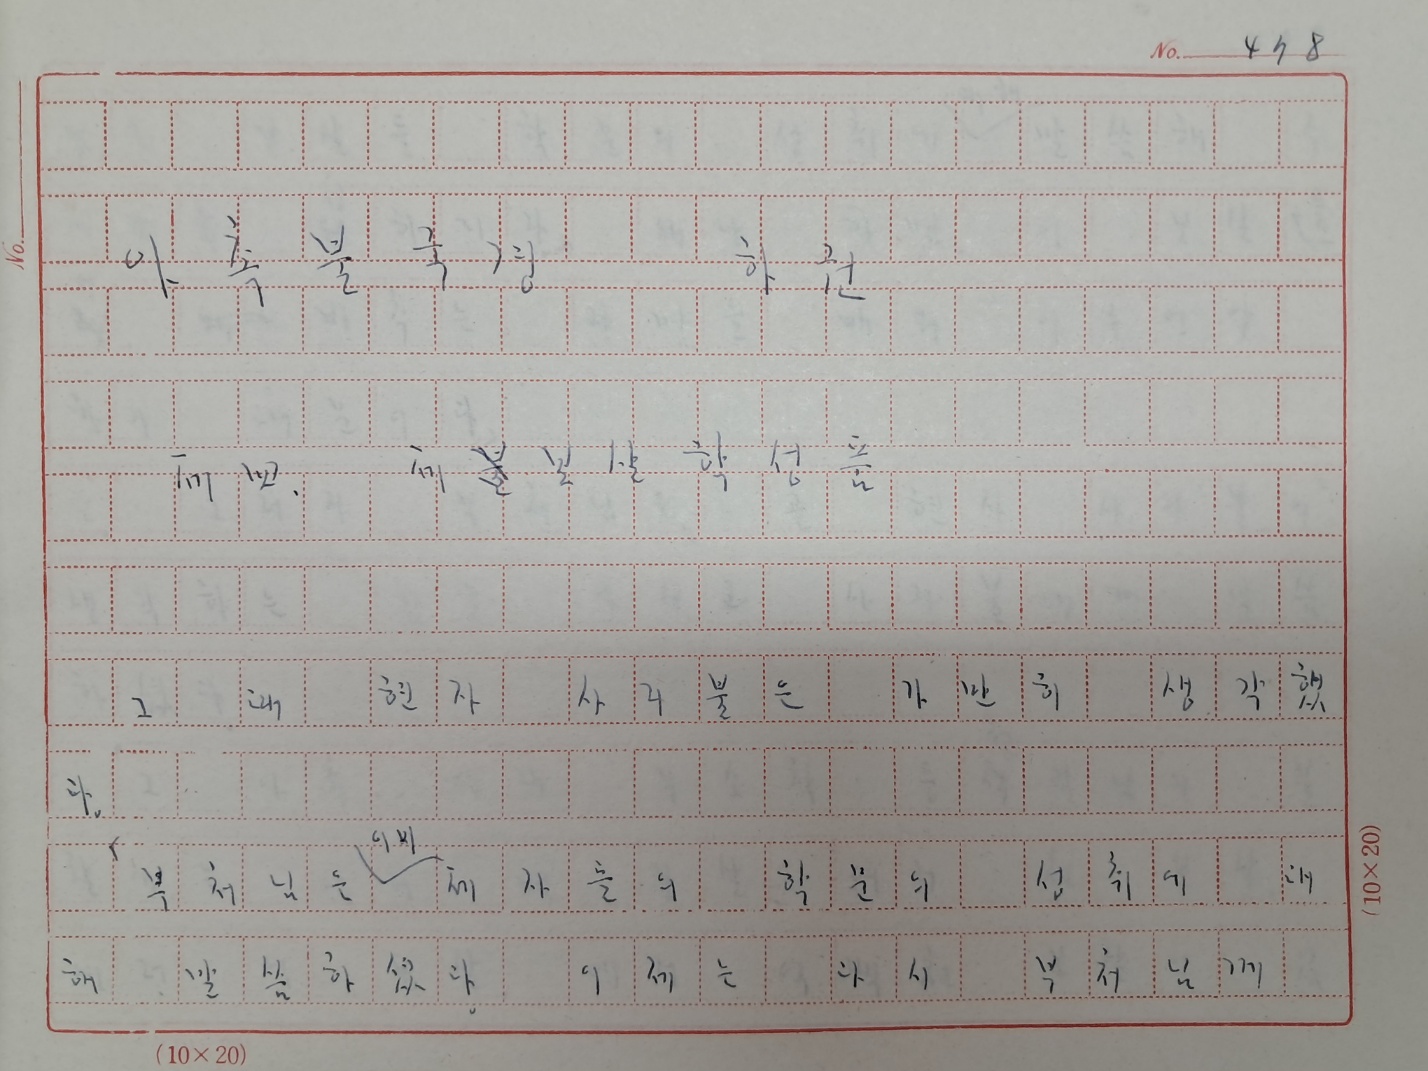 No. 478
No.
아 축 불 국 경 하 권
제 보 살 학 성 품
그 때 현자 사리불은 가만히 생각했
다.
이미
「부처님은 제자들의 학문의 섭취에 대
해 말씀하셨다. 이제는 다시 부처님께
(10×20)
(10×20)